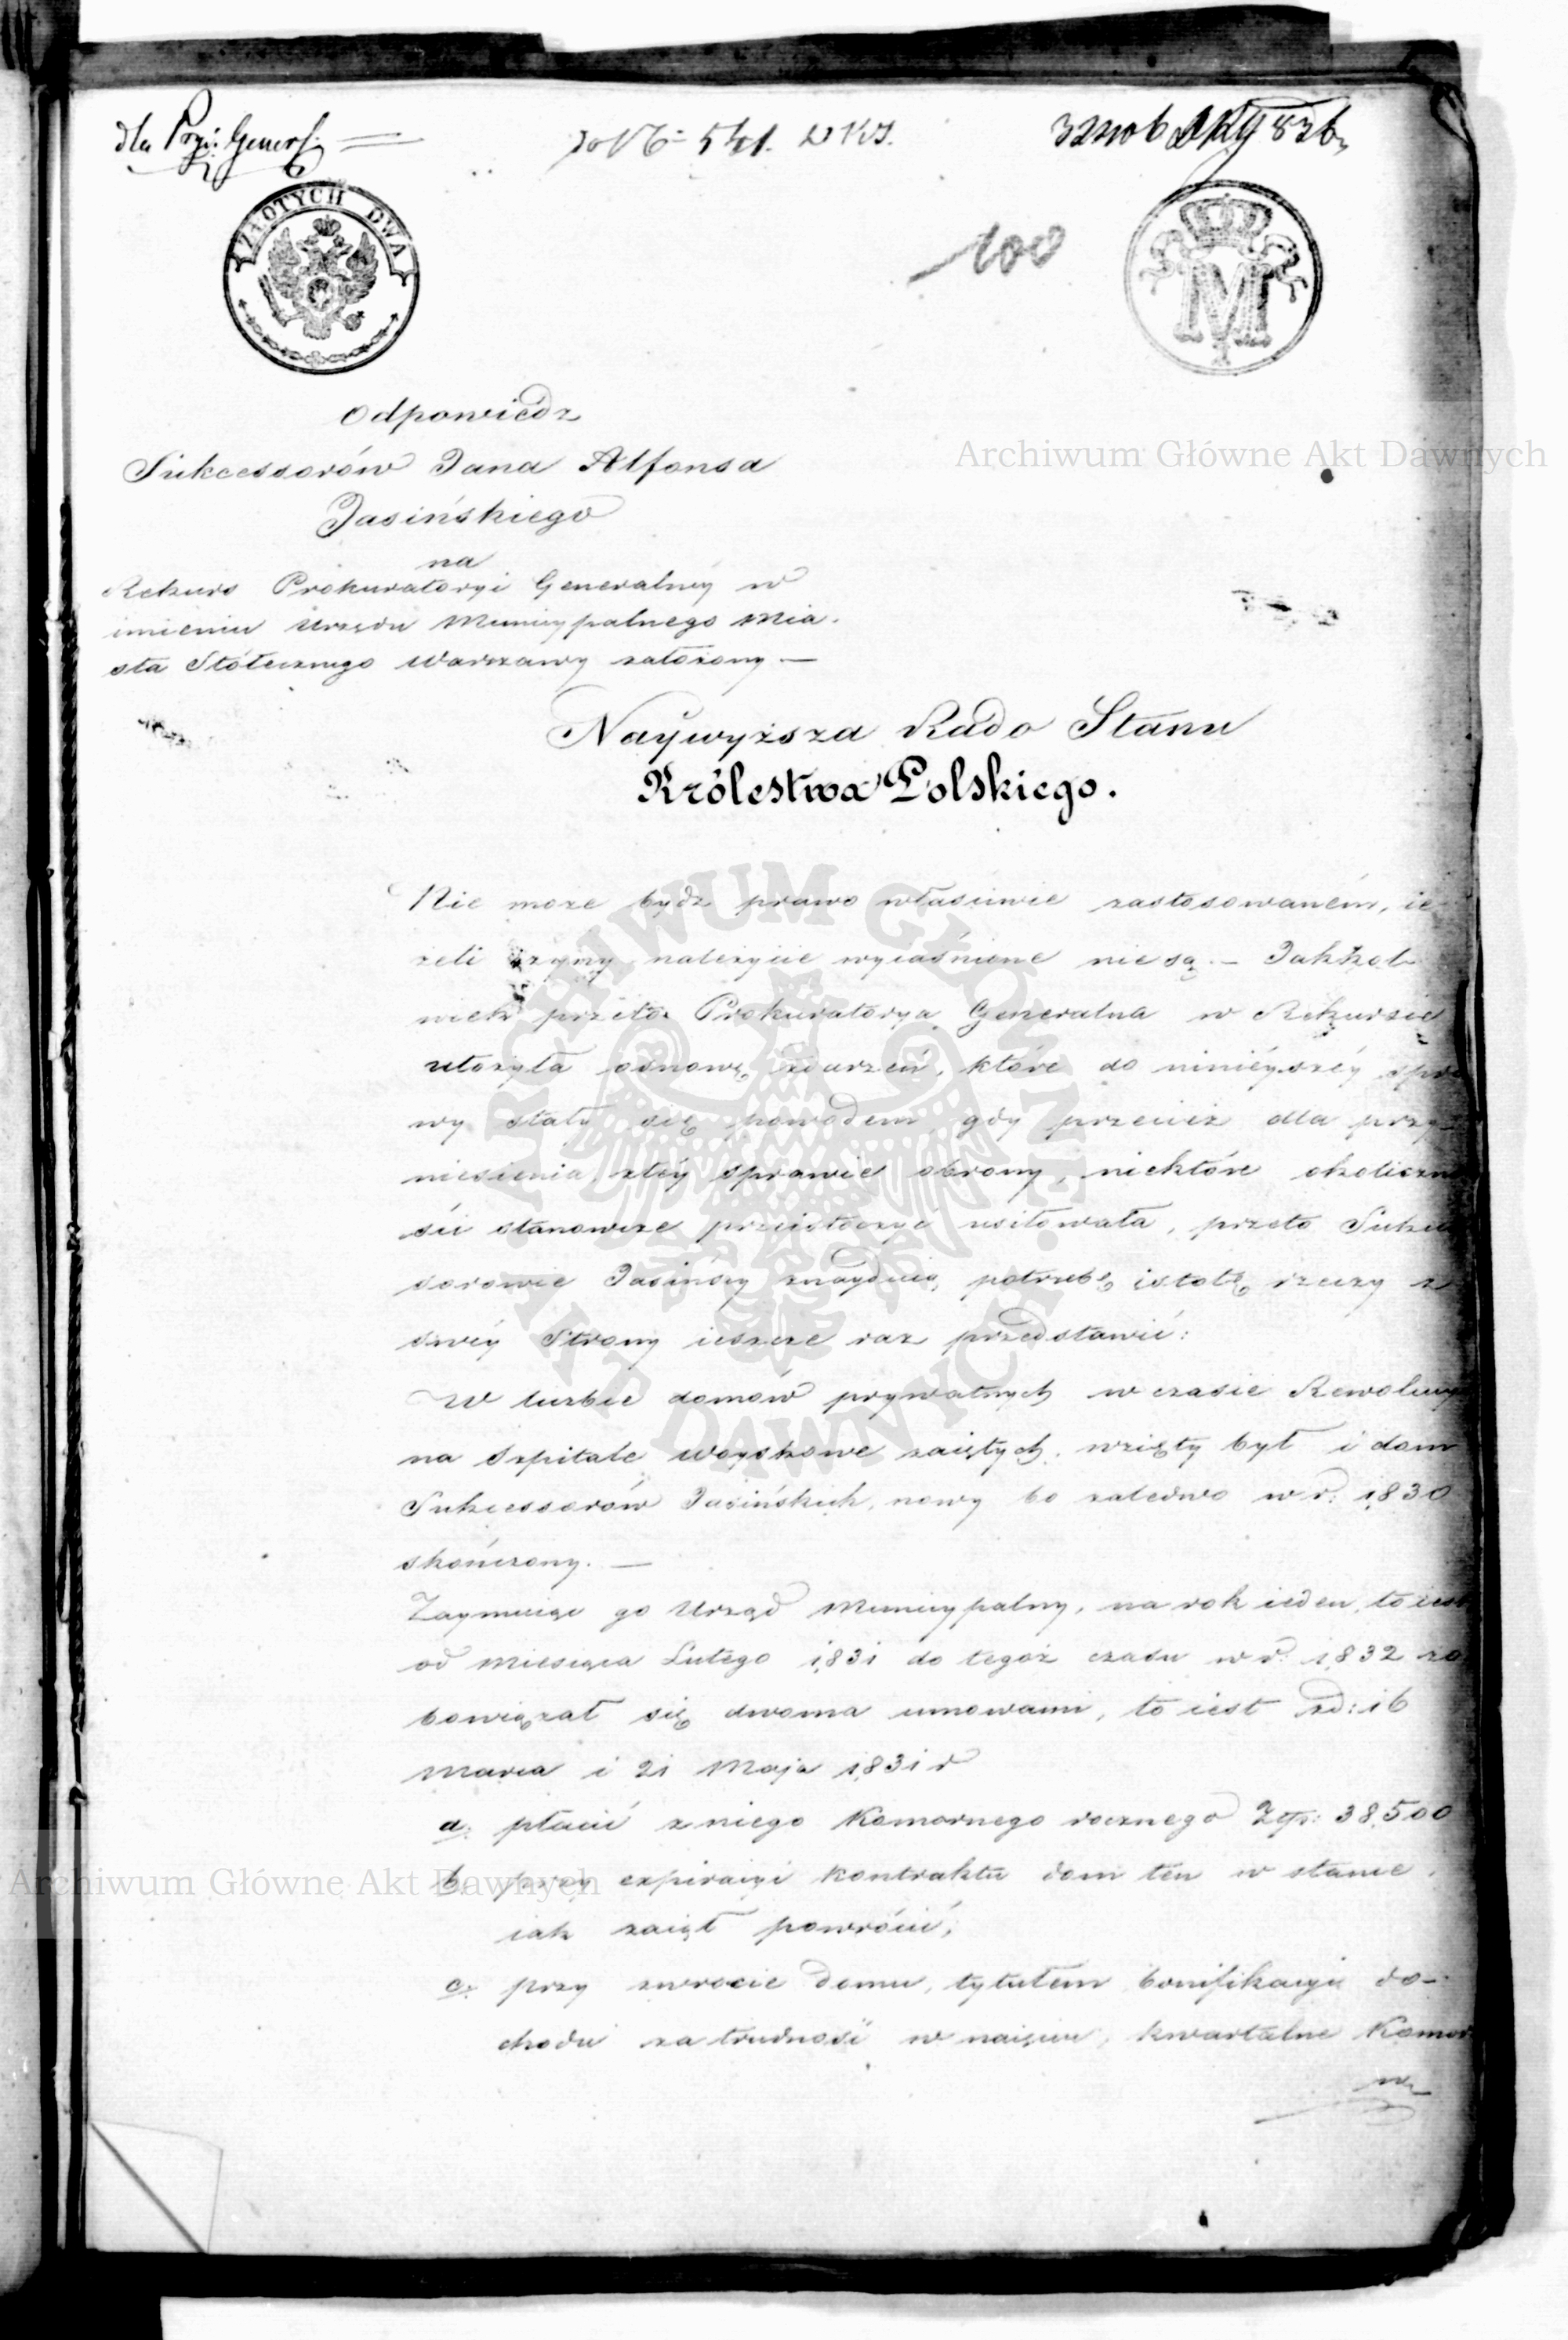 dla Prok: Generl.
do № 541.
100
ZŁOTYCH DWA
M
Odpowiedz
Sukcessorów Jana Alfonsa
Jasińskiego
na
Rekurs Prokuratoryi Generalnéy w
imieniu Urzędu Municypalnego Mia-
sta Stołecznego Warszawy założony —
Naywyższa Rado Stanu
Królestwa Polskiego.
Nie może bydz prawo właściwie zastosowaném, ie-
żeli czyny należycie wyiaśnione nie są. — Jakkol-
wiek przeto Prokuratorya Generalna w Rekursie
ułożyła osnowę zdarzeń, które do ninieyszéy spra
wy stały się powodem gdy przecież dla przy-
niesienia złéy sprawie obrony, niektóre okoliczno
ści stanowcze przeistoczyć usiłowała, przeto Sukces
sorowie Jasińscy znayduią potrzebę istotę rzeczy z
swéy Strony ieszcze raz przedstawić:
W liczbie domów prywatnych w czasie Rewolucyi
na Szpitale woyskowe zaiętych, wzięty był i dom
Sukcessorów Jasińskich, nowy bo zaledwo w r: 1830
skończony. —
Zaymuiąc go Urząd Municypalny, na rok ieden, to iest
od miesiąca Lutego 1831 do tegoż czasu w r: 1832 zo
bowiązał się dwoma umowami, to iest zd: 16
Marca i 21 Maja 1831 r
a. płacić z niego Komornego rocznego Złp: 38,500
b. przy expiracyi kontraktu dom ten w stanie,
iak zaiął powrócić,
c. przy zwrocie domu, tytułem bonifikacyi do-
chodu za trudność w naięciu, kwartalne Komor
Archiwum Główne Akt Dawnych
ARCHIWUM GŁÓWNE AKT DAWNYCH
Archiwum Główne Akt Dawnych